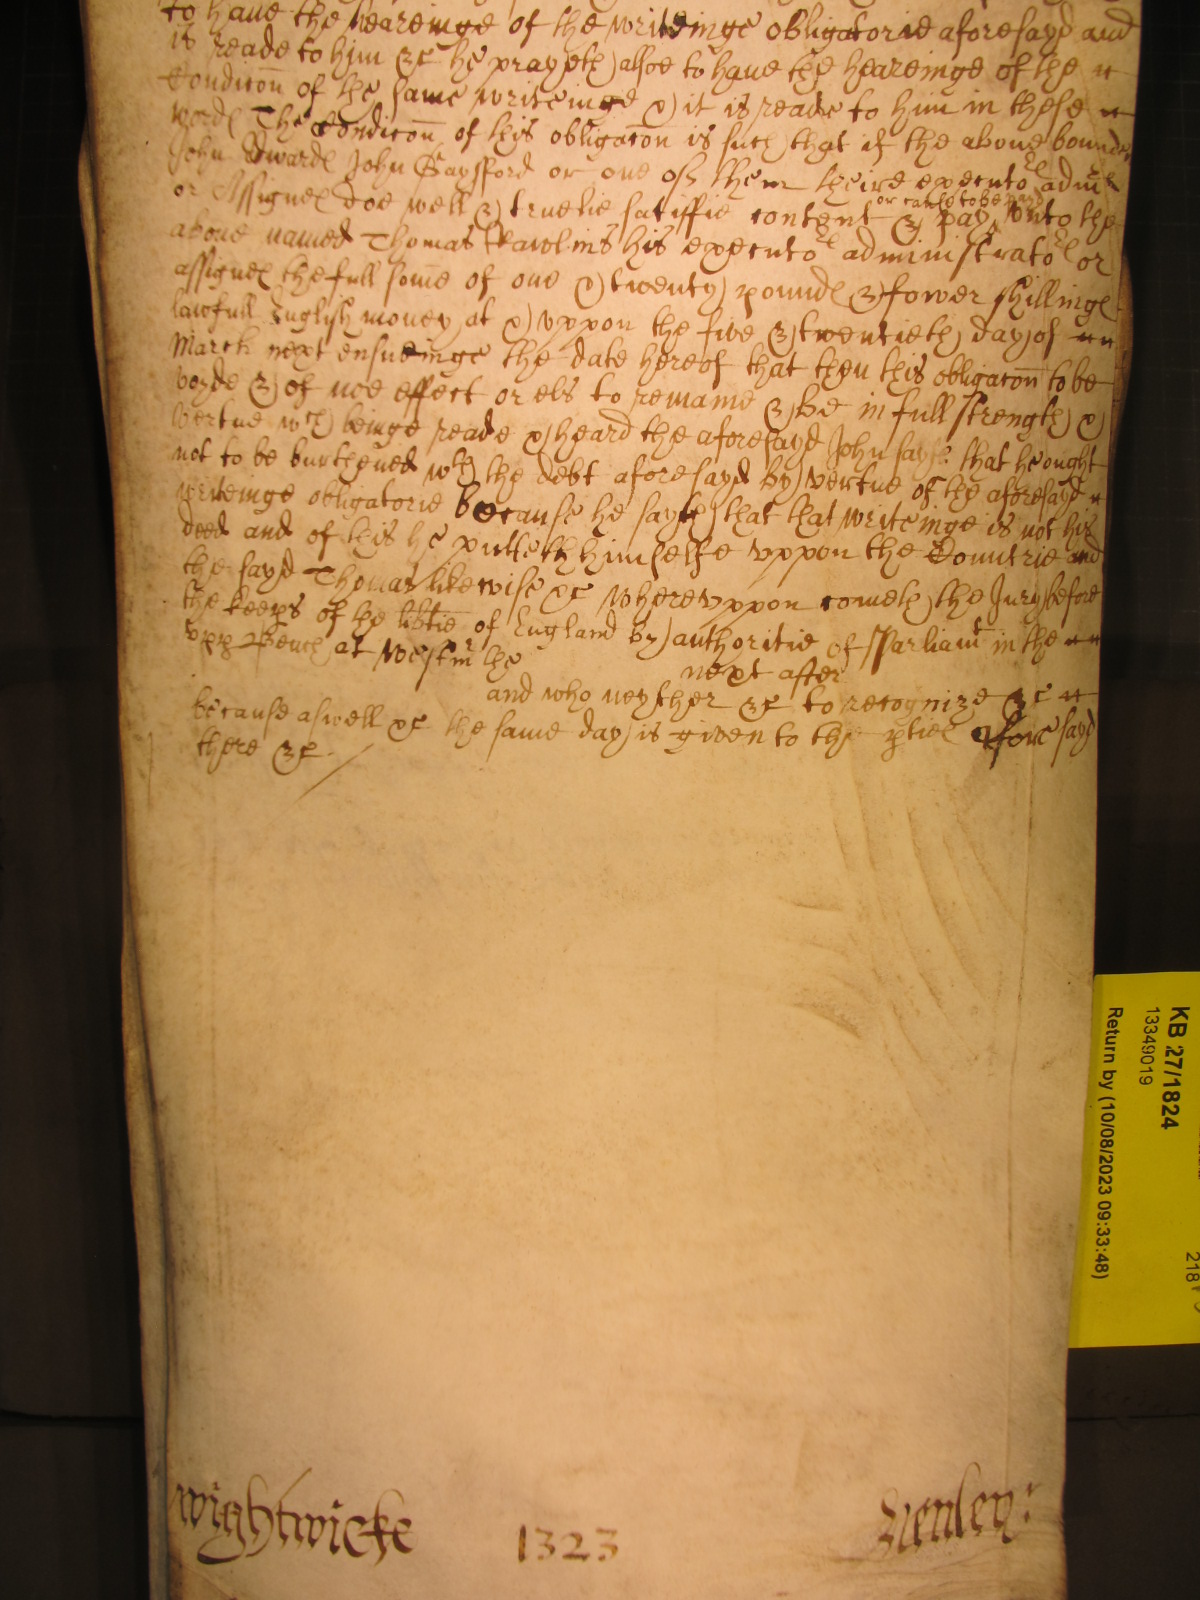 to haue the heareinge of the writeinge obligatorie aforesayd and
is reade to him &c he prayeth alsoe to haue the heareinge of the
Condicōn of the same writeinge & it is reade to him in these
word℮ The Condicōn of this obligacōn is such that if the aboue bounde
John Edward℮ John Gaysford or one of them theire executo℮ adm℮
or Assignes doe well & truelie satisfie content & pay or cause to be payd vnto the
aboue named Thomas Rawlins his executo℮ administrato℮ or
assignes the full some of one & twenty pound℮ & fower shillinge℮
lawfull English money at & vppon the five & twentieth day of
March next ensueinge the date hereof that then this obligacōn to be
voyde & of noe effect or els to remaine & be in full strength &
vertue wch beinge reade & heard the aforesayd John sayth that he ought
not to be burthened wth the debt aforesayd by vertue of the aforesayd
writeinge obligatorie because he sayth that that writeinge is not his
deed and of this he putteth himselfe vppon the Countrie and
the sayd Thomas likewise &c Wherevppon cometh the Jury before
the keeps of the libtie of England by authoritie of Parliamt in the
vpp Bench at Westmr the next after
and who neyther &c to recognize &c
because aswell &c the same day is given to the pties aforesayd
there &c
Wightwicke 1323 Henley
KB 27/1824
13349019
Return by (10/08/2023 09:33:48)